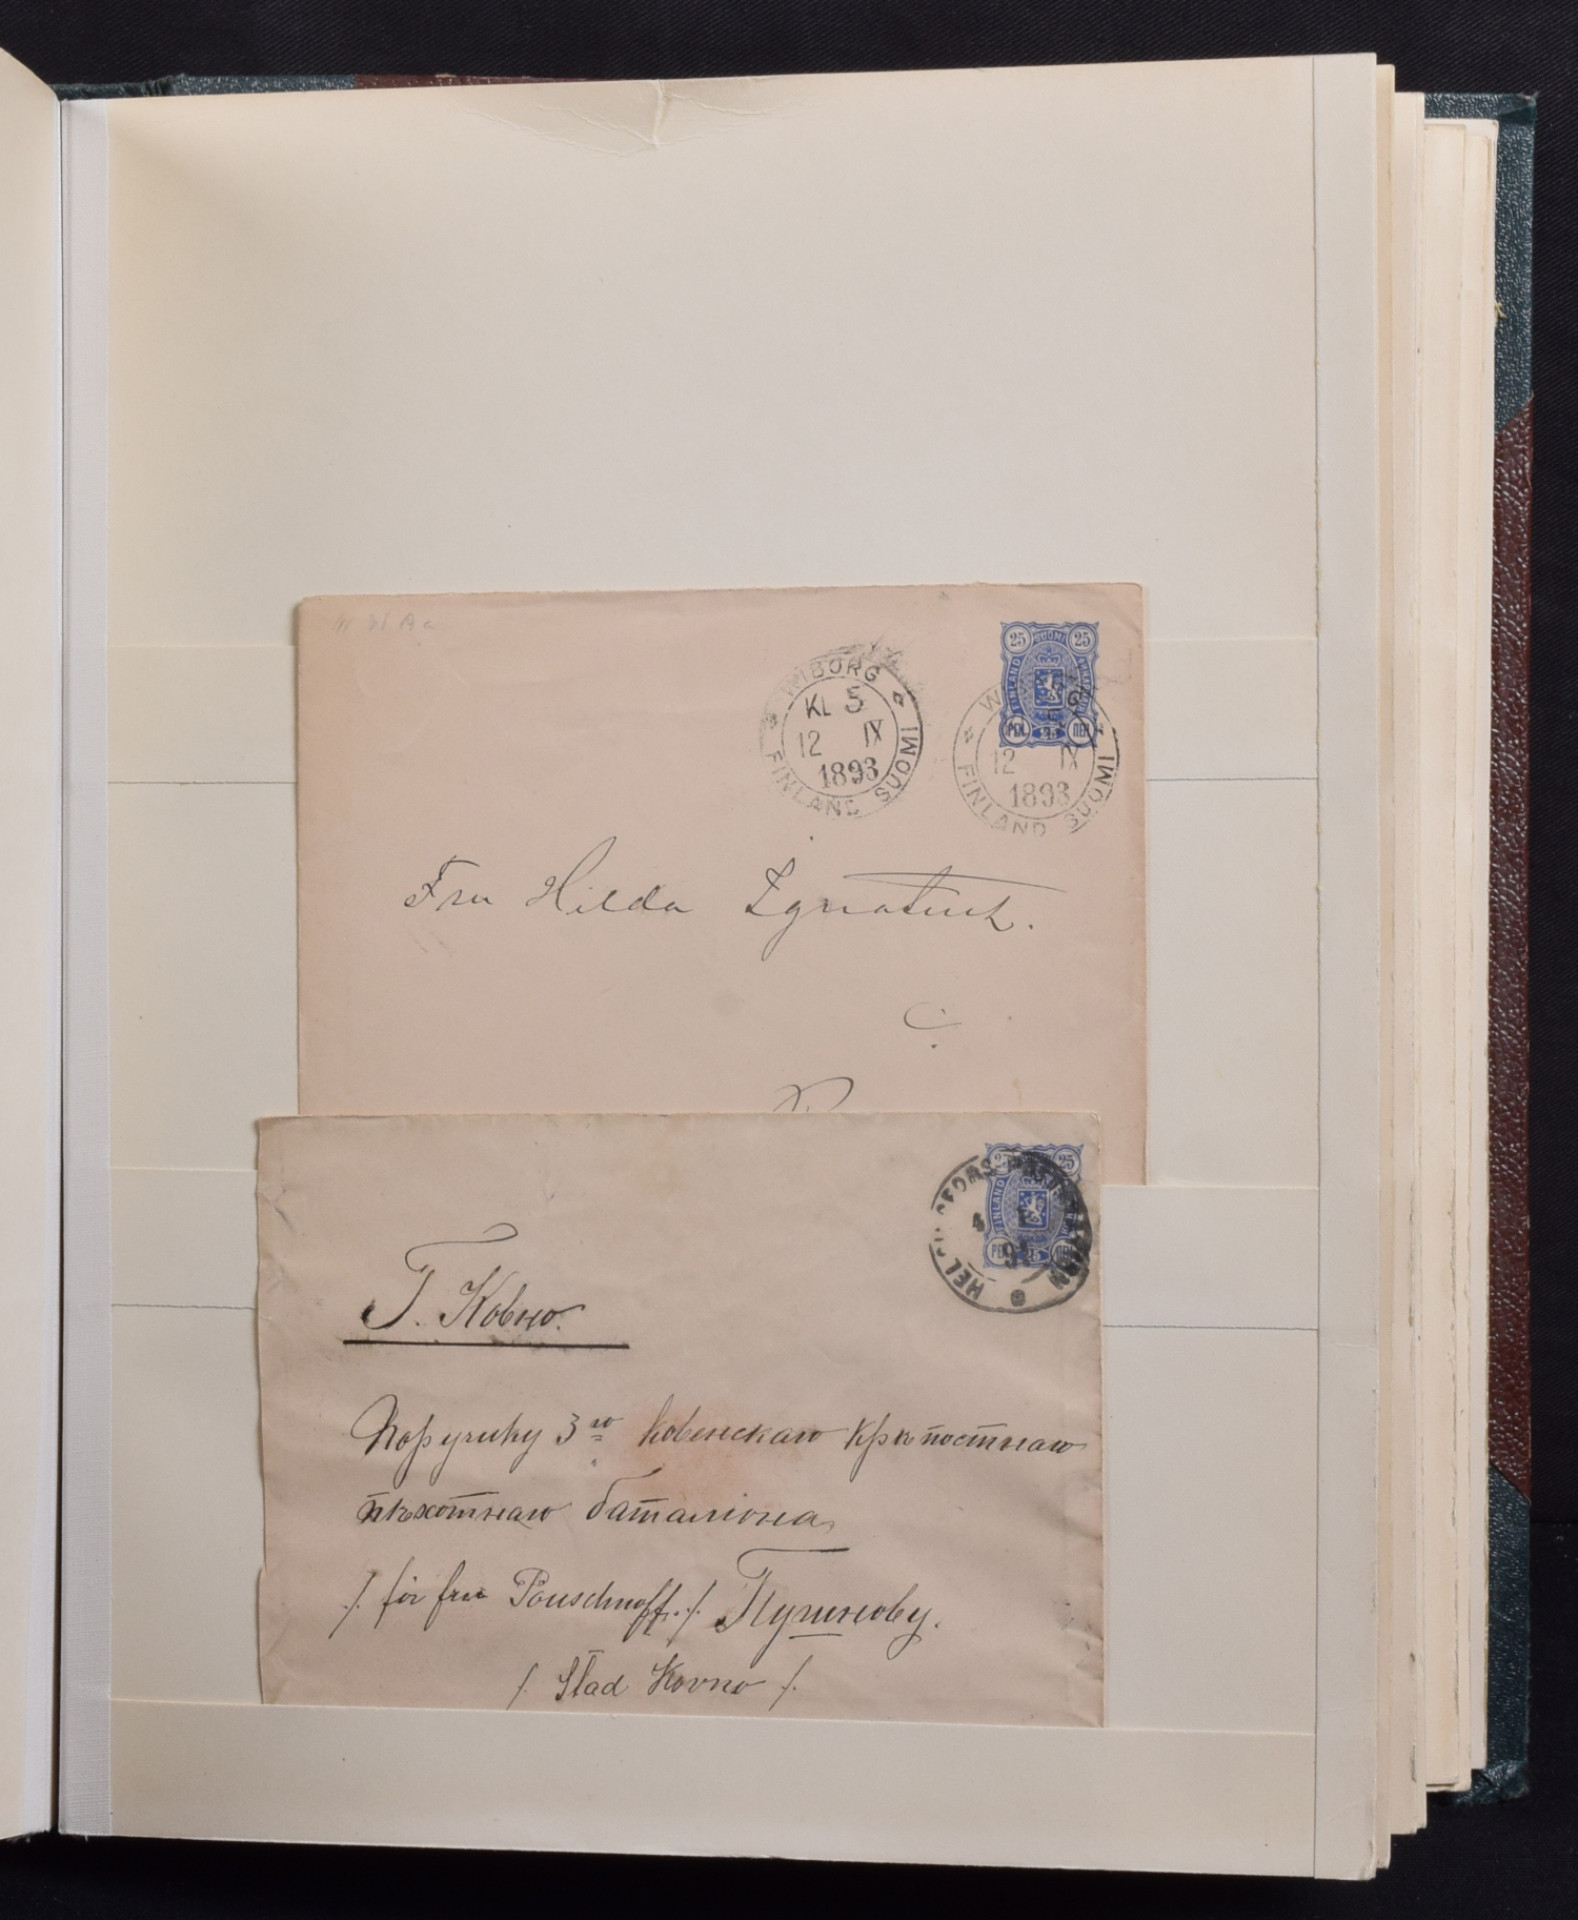 WIBORG
KL 5
12 IX
1893
FINLAND SUOMI
25 SUOMI 25
FINLAND
PEN. 25 ПЕН.
12 IX
1893
FINLAND SUOMI
Fru Hilda Ignatius.
25
FINLAND
PEN. 25 ПЕН.
Г. Ковно.
Поручику 3го Ковенскаго Крѣпостнаго
пѣхотнаго баталіона
/. för fru Pouschnoff. ./ Пушнову.
/. Stad Kovno /.